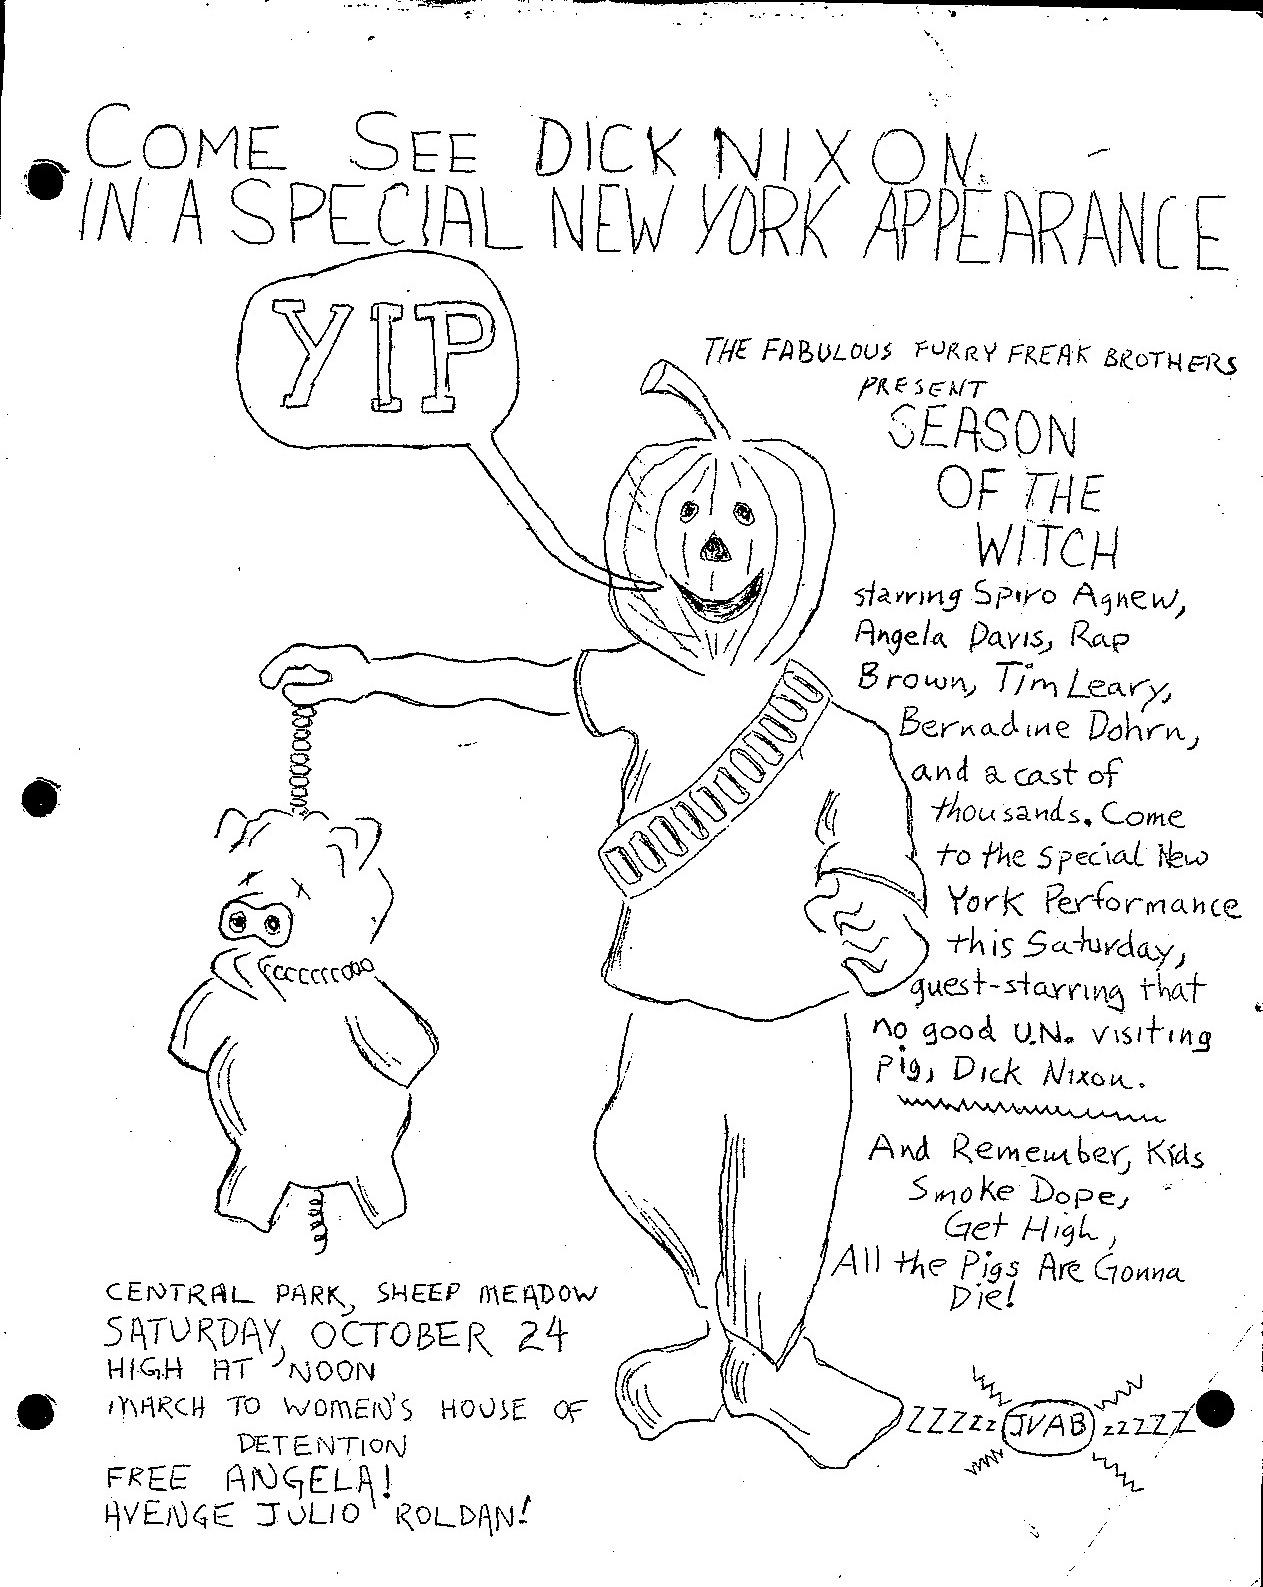 COME SEE DICK NIXON
IN A SPECIAL NEW YORK APPEARANCE
YIP
THE FABULOUS FURRY FREAK BROTHERS
PRESENT
SEASON
OF THE
WITCH
starring Spiro Agnew,
Angela Davis, Rap
Brown, Tim Leary,
Bernadine Dohrn,
and a cast of
thousands. Come
to the special New
York Performance
this Saturday,
guest-starring that
no good U.N. visiting
pig, Dick Nixon.
And Remember, Kids
Smoke Dope,
Get High,
All the Pigs Are Gonna
Die!
CENTRAL PARK, SHEEP MEADOW
SATURDAY, OCTOBER 24
HIGH AT NOON
MARCH TO WOMEN'S HOUSE OF
DETENTION
FREE ANGELA!
AVENGE JULIO ROLDAN!
ZZZZZ JVAB ZZZZZ